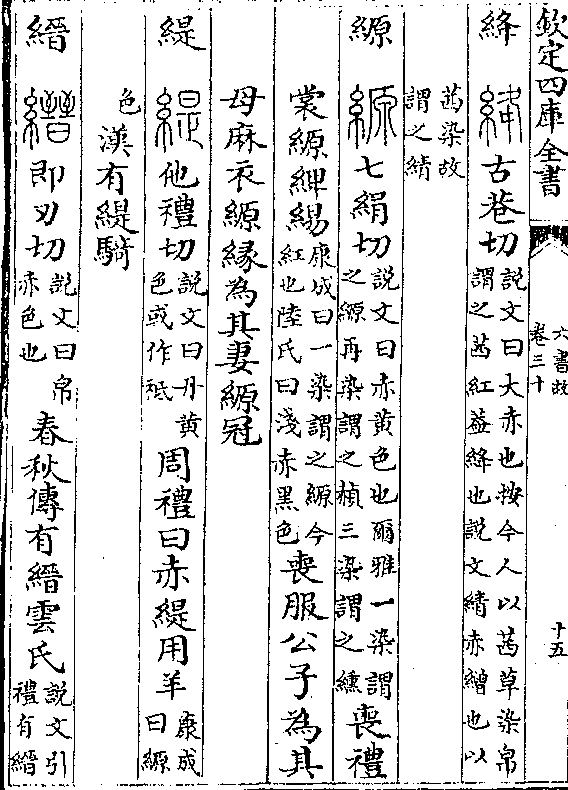 欽定四庫全書 六書故 卷三十 十五
絳 絳 古巷切 說文曰大赤也按今人以茜草染帛謂之茜紅葢絳也說文綪赤繒也以
茜染故謂之綪
縓 縓 七絹切 說文曰赤黄色也爾雅一染謂之縓再染謂之赬三染謂之纁 喪禮
裳縓綼緆 康成曰一染謂之縓今紅也陸氏曰淺赤黑色 喪服公子為其
母麻衣縓緣為其妻縓冠
緹 緹 他禮切 說文曰丹黄色或作衹 周禮曰赤緹用羊 康成曰縓
色 漢有緹騎
縉 縉 即刃切 說文曰帛赤色也 春秋傳有縉雲氏 說文引禮有縉